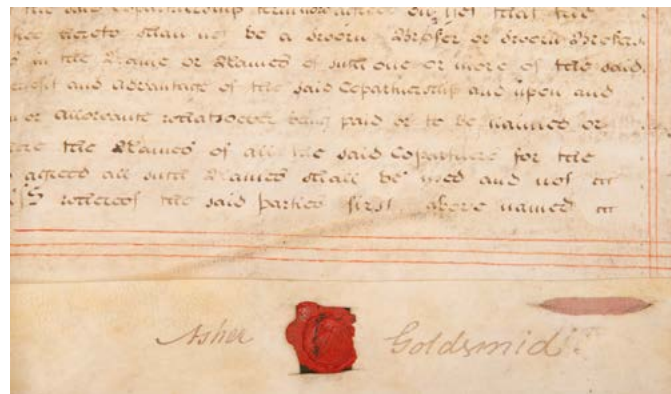 the said Copartnership
hereto shall not be a Sworn Broker or Sworn Brokers
in the Name or Names of such one or more of the said
and Advantage of the said Copartnership and upon and
or Allowance whatsoever being paid or to be named or
the Names of all the said Copartners for the
agreed all such Names shall be used and not
whereof the said parties first above named
Asher Goldsmid